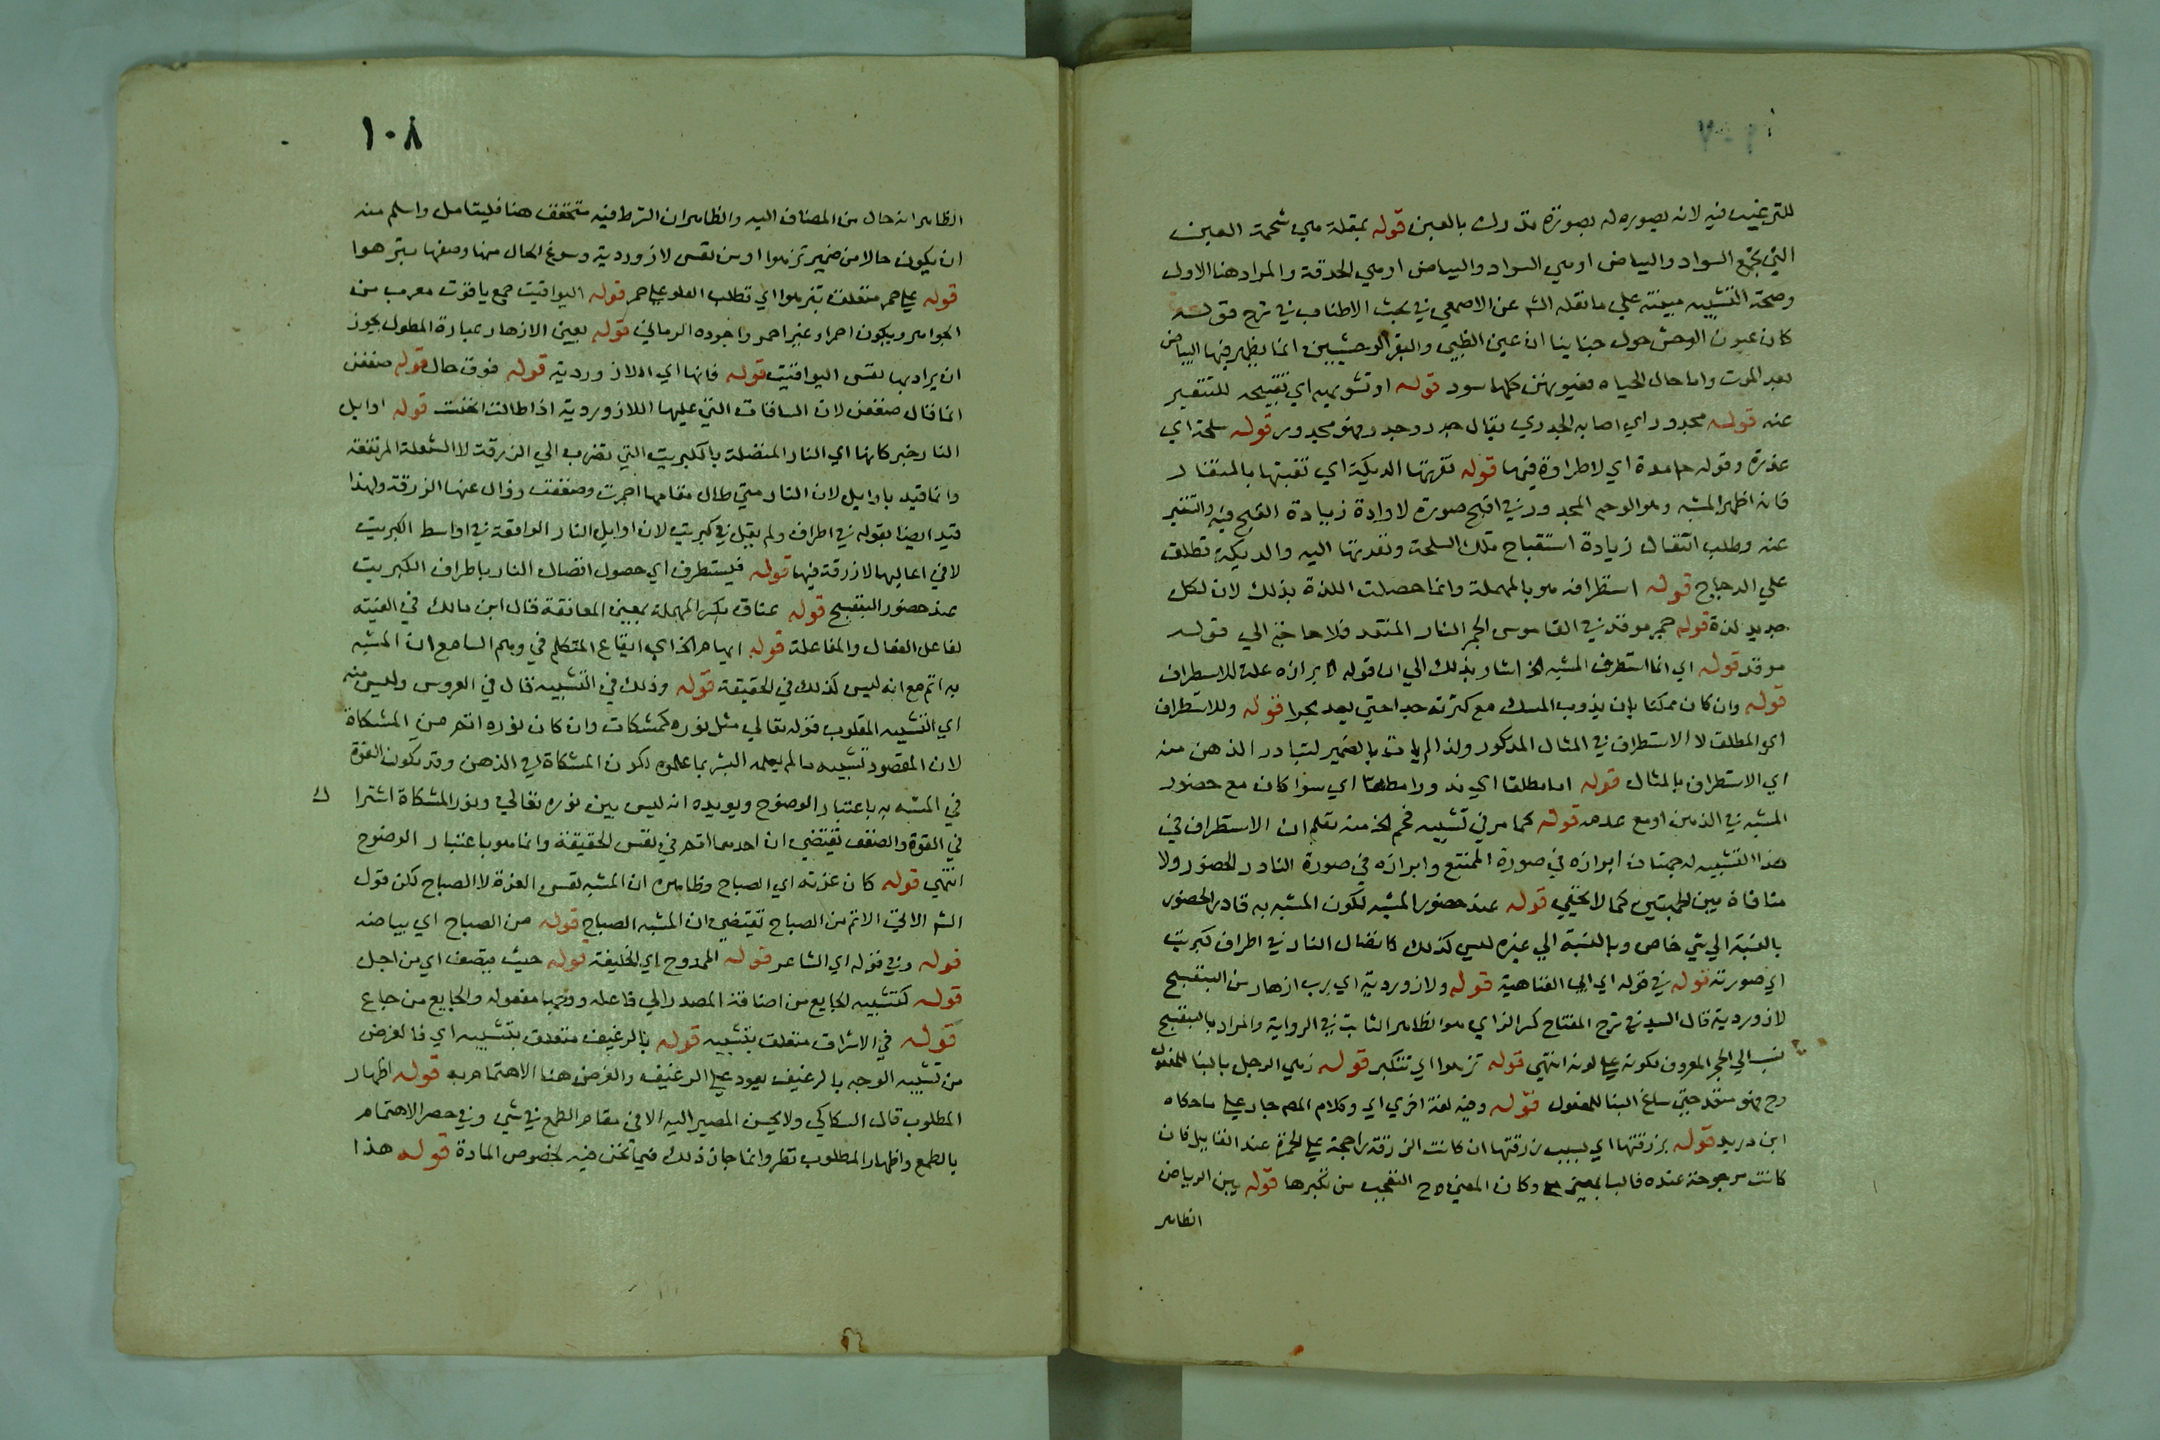 للترغيب فيه لانه يصوره له بصورة تدرك بالعين قوله بمقلة هي شحمة العين
التي تجمع السواد والبياض او هي السواد والبياض او هي الحدقة والمراد هنا الاول
وصحة التشبيه مبينة علي ما نقله الشم عن الاصمعي في بحث الاطناب في شرح قوله
كان عيون الوحش حول خباينا ان عين الظبي والبقر الوحشيين انما يظهر فيها البياض
بعد الموت واما حال الحياه فعيونهن كلها سود قوله او تشويهه اي تقبيحه للتنفير
عنه قوله مجدور اي اصابه الجدري يقال جدر وجدر فهو مجدور قوله سلحة اي
عذرة وقوله جامدة اي لا طراوة فيها قوله نقرتها الديكة اي نقبتها بالمنقار
فانه اظهر المشبه وهو الوجه المجدور في اقبح صورة لارادة زيادة القبح فيه والتنفير
عنه وطلب انتقال زيادة استقباح تلك السلحة ونقرتها اليه والديكة تطلق
علي الدجاج قوله استطرافه هو بالمهملة وانما حصلت اللذة بذلك لان لكل
جديد لذة قوله جمر موقد في القاموس الجمر النار المتقد فلا حاجة الي قوله
موقد قوله اي انما استطرف المشبه الخ اشار بذلك الي ان قوله لابرازه علة للاستطراف
قوله وان كان ممكنا بان يذوب المسك مع كثرته جدا حتي يعد بحرا قوله وللاستطراف
اي المطلق لا الاستطراف في المثال المذكور ولذا لم يات بالضمير لتبادر الذهن منه
اي الاستطراف بالمثال قوله اما مطلقا اي ندورا مطلقا اي سوا كان مع حضور
المشبه في الذهن او مع عدمه قوله كما مر في تشبيه فحم الخ منه تعلم ان الاستطراف في
هذا التشبيه له جهتان ابرازه في صورة الممتنع وابرازه في صورة النادر الحضور ولا
منافاة بين الجهتين كما لا يخفي قوله عند حضور المشبه لكون المشبه به نادر الحضور
بالنسبة الي شي خاص وبالنسبة الي غيره ليس كذلك كاتصال النار في اطراف كبريت
اي صورته قوله في قوله اي ابي العتاهية قوله ولازوردية اي رب ازهار من البنفسج
لازوردية قال السيد في شرح المفتاح كسر الزاي هو الظاهر الثابت في الرواية والمراد بالبنفسج
نسب الي الحجر المعروف لكونه علي لونه انتهي قوله تزهو اي تتكبر قوله زهي الرجل بالبنا للمفعول
وح فهو متعد حتي ساغ البنا للمفعول قوله وفيه لغة اخري اي وكلام المص جار علي ما حكاه
ابن دريد قوله بزرقتها اي بسبب زرقتها ان كانت الزرقة راجحة علي الحمرة عند القايل فان
كانت مرجوحة عنده فالبا بمعني وكان المعني ح التعجب من تكبرها قوله بين الرياض
الظاهر
١٠٨
الظاهر انه حال من المضاف اليه والظاهر ان الشرط فيه متحقق هنا فليتامل واسلم منه
ان يكون حالا من ضمير تزهوا او من نفس لازوردية وسوغ الحال منها وصفها بتزهوا
قوله علي حمر متعلق بتزهوا اي تطلب العلو علي حمر قوله اليواقيت جمع ياقوت معرب من
الجواهر ويكون احمر وغير احمر واجوده الرماني قوله يعني الازهار عبارة المطول يجوز
ان يراد بها نفس اليواقيت قوله فانها اي اللازوردية قوله فوق حال قوله ضعفن
انما قال ضعفن لان الساقات التي عليها اللازوردية اذا طالت انحنت قوله اوايل
النار خبر كانها اي النار المتصلة بالكبريت التي تضرب الي الزرقة لا الشعلة المرتفعة
وانما قيد باوايل لان النار متي طال مقامها احمرت وضعفت وزال عنها الزرقة ولهذا
قيد ايضا بقوله في اطراف ولم يقل في كبريت لان اوايل النار الواقعة في اواسط الكبريت
لا في اعاليها لا زرقة فيها قوله فيستطرف اي حصول اتصال النار باطراف الكبريت
عند حضور البنفسج قوله عناق بكسر المهملة بمعني المعانقة قال ابن مالك في الفيته
لفاعل الفعال والمفاعلة قوله ايهام الخ اي ايقاع المتكلم في وهم السامع ان المشبه
به اتم مع انه ليس كذلك في الحقيقة قوله وذلك في التشبيه قال في العروس وليس منه
اي التشبيه المقلوب قوله تعالي مثل نوره كمشكات وان كان نوره اتم من المشكاة
لان المقصود تشبيه ما لم يعلمه البشر بما علموه لكون المشكاة في الذهن وقد يكون القوة
في المشبه به باعتبار الوضوح ويويده انه ليس بين نوره تعالي ونور المشكاة اشتراك
في القوة والضعف تقتضي ان احدهما اتم في نفس الحقيقة وانما هو باعتبار الوضوح
انتهي قوله كان غرته اي الصباح وظاهره ان المشبه نفس الغرة لا الصباح لكن قول
الشم الاتي الاتم من الصباح تقتضي ان المشبه الصباح قوله من الصباح اي بياضه
قوله وفي قوله اي الشاعر قوله الممدوح اي الخليفة قوله حيث يتصف اي من اجل
قوله كتشبيه الجايع من اضافة المصدر الي فاعله ووجها مفعوله والجايع من جاع
قوله في الاشراق متعلق بتشبيه قوله بالرغيف متعلق بتشبيه اي فالغرض
من تشبيه الوجه بالرغيف يعود علي الرغيف والغرض هنا الاهتمام به قوله اظهار
المطلوب قال السكاكي ولا يحسن المصير اليه الا في مقام الطمع في شي وفي حصر الاهتمام
بالطمع واظهار المطلوب نظر وانما جاز ذلك فيما نحن فيه لخصوص المادة قوله هذا